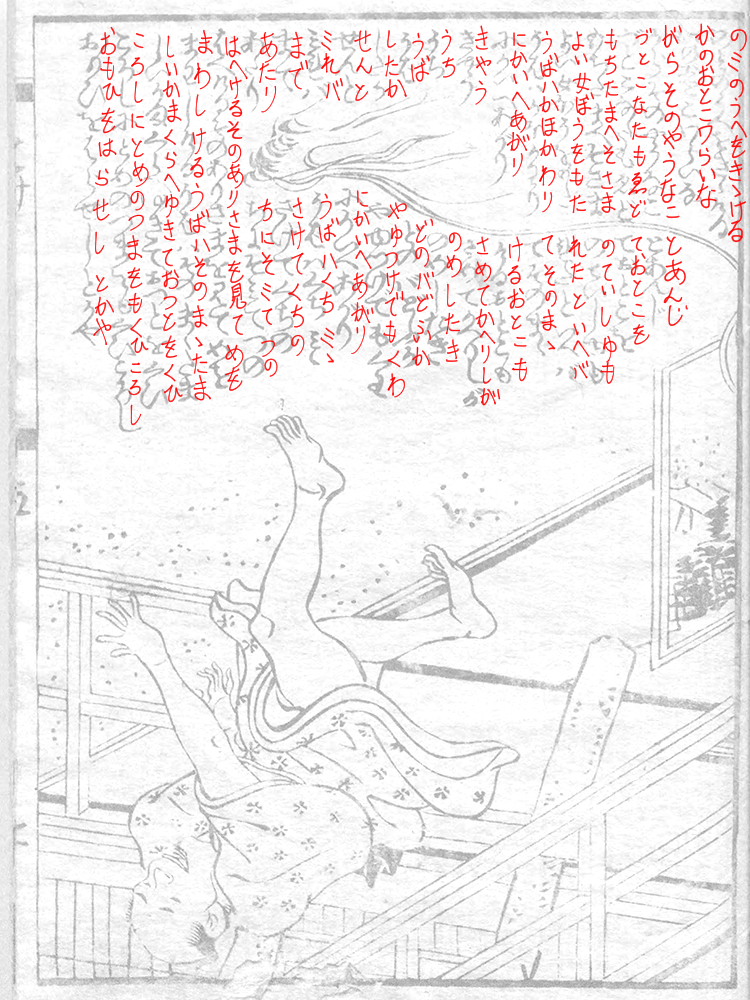 のミのうへをきゝける
かのおとこワらいな
がらそのやうなことあんじ
づとこなたもゑどておとこを
もちたまへそさまのていしゆも
よい女ぼうをもたれたといへバ
うばハかほかわりてそのまゝ
にかいへあがりけるおとこも
きやうさめてかへりしが
うちのめしたき
うばどのバどふか
したがやゆつけでもくわ
せんとにかいへあがり
ミれバうばハくちミゝ
までさけてくちの
あたりちにそミてつの
はへけるそのありさまを見てめを
まわしけるうばハそのまゝたま
しいかまくらへゆきておつとをくひ
ころしにとめのつまをもくひころし
おもひをはらせしとかや